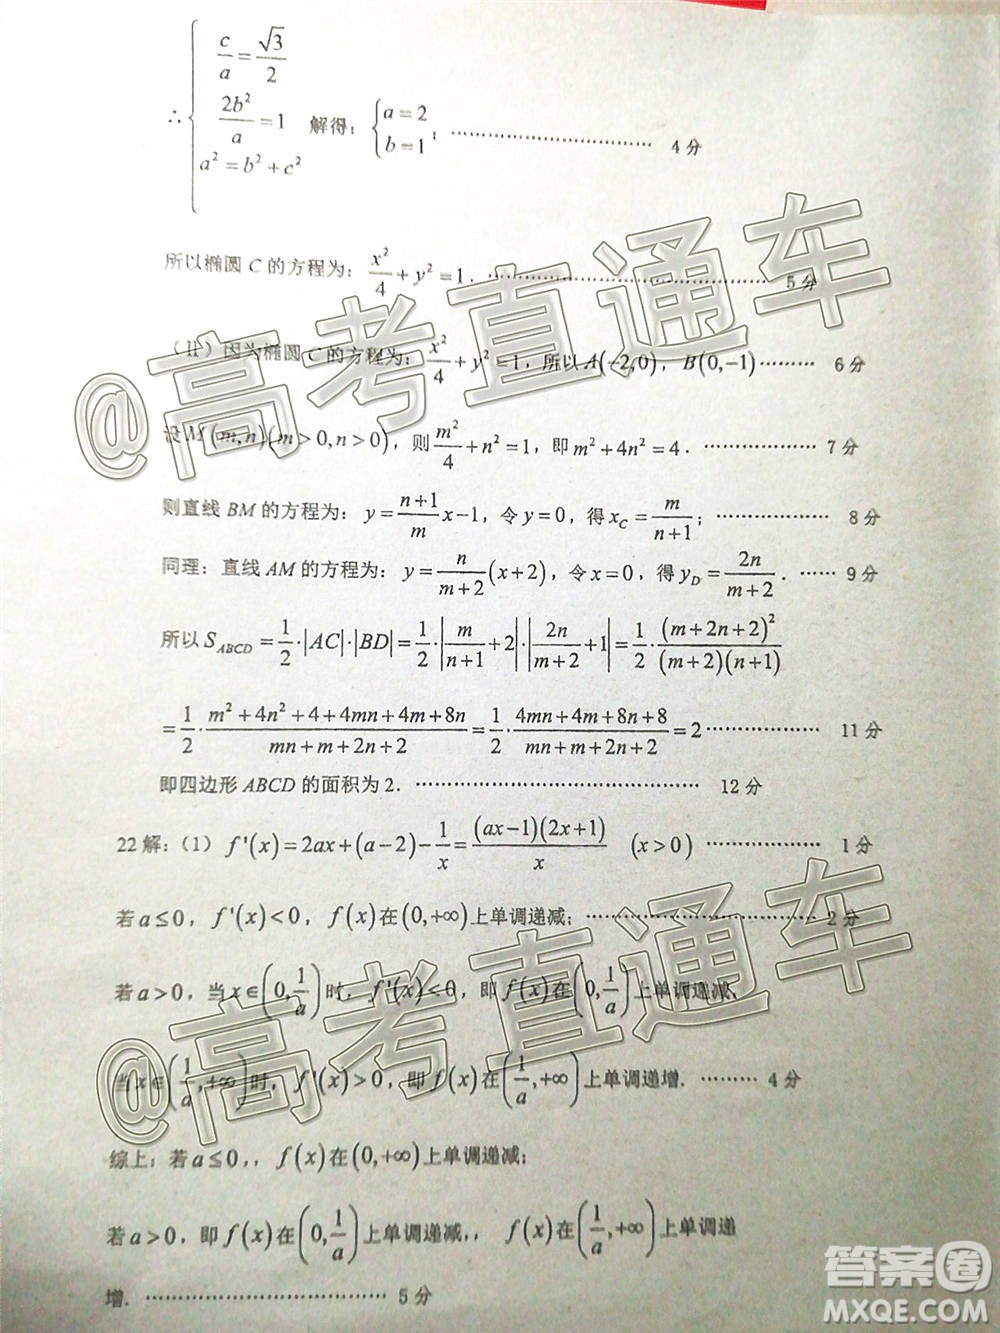 ∴ { c/a = √3/2
2b²/a = 1 解得: { a = 2
b = 1 ; ………………………… 4 分
a² = b² + c²
所以椭圆 C 的方程为: x²/4 + y² = 1. ………………………… 5 分
(II) 因为椭圆 C 的方程为: x²/4 + y² = 1, 所以 A(-2,0), B(0,-1) ……… 6 分
设 M(m,n)(m>0,n>0), 则 m²/4 + n² = 1, 即 m² + 4n² = 4. ……………… 7 分
则直线 BM 的方程为: y = (n+1)/m x - 1, 令 y = 0, 得 x_C = m/(n+1); ……………… 8 分
同理: 直线 AM 的方程为: y = n/(m+2) (x+2), 令 x = 0, 得 y_D = 2n/(m+2). …… 9 分
所以 S_ABCD = 1/2 · |AC| · |BD| = 1/2 · |m/(n+1) + 2| · |2n/(m+2) + 1| = 1/2 · (m+2n+2)²/((m+2)(n+1))
= 1/2 · (m²+4n²+4+4mn+4m+8n)/(mn+m+2n+2) = 1/2 · (4mn+4m+8n+8)/(mn+m+2n+2) = 2 …………… 11 分
即四边形 ABCD 的面积为 2. ………………………………… 12 分
22 解: (1) f'(x) = 2ax + (a-2) - 1/x = (ax-1)(2x+1)/x (x>0) ……………… 1 分
若 a ≤ 0, f'(x) < 0, f(x) 在 (0,+∞) 上单调递减; ………………………… 2 分
若 a > 0, 当 x ∈ (0, 1/a) 时, f'(x) < 0, 即 f(x) 在 (0, 1/a) 上单调递减,
当 x ∈ (1/a, +∞) 时, f'(x) > 0, 即 f(x) 在 (1/a, +∞) 上单调递增. ……… 4 分
综上: 若 a ≤ 0,, f(x) 在 (0,+∞) 上单调递减;
若 a > 0, 即 f(x) 在 (0, 1/a) 上单调递减,, f(x) 在 (1/a, +∞) 上单调递
增. ………………………………… 5 分
@高考直通车
@高考直通车
答案圈
MXQE.COM